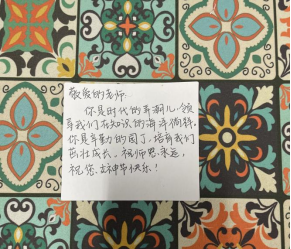 敬爱的老师:
你是时代的弄潮儿,领
导我们在知识的海洋徜徉,
你是辛勤的园丁,培育我们
茁壮成长。祝师恩永远,
祝您:女神节快乐!